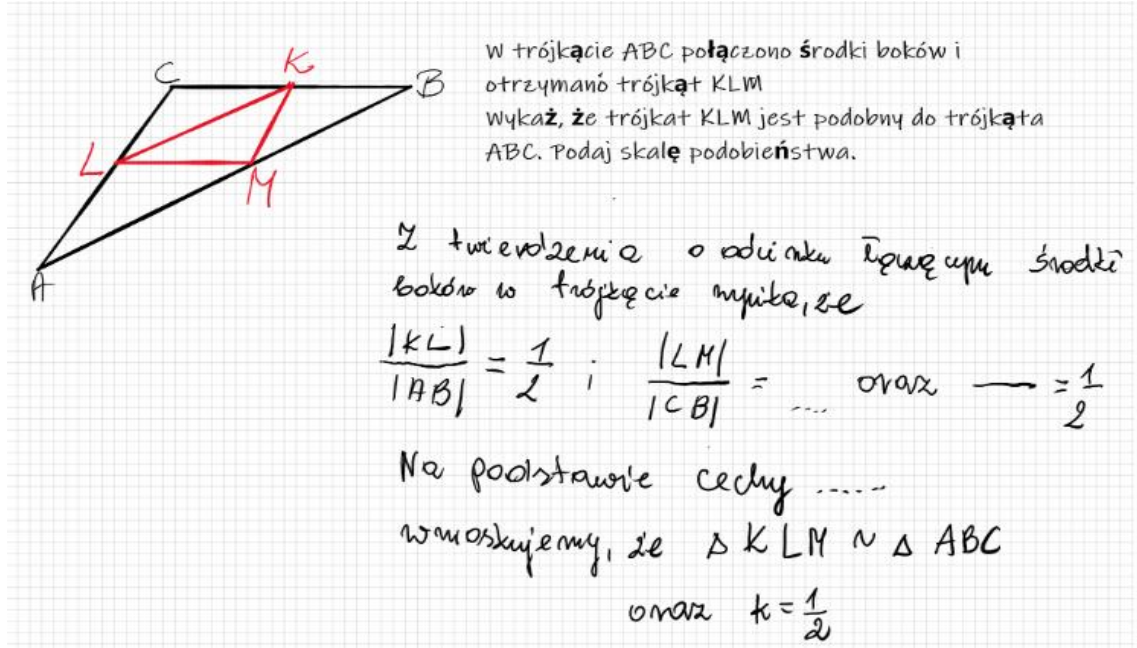 C K B
L M
A
W trójkącie ABC połączono środki boków i
otrzymano trójkąt KLM
Wykaż, że trójkat KLM jest podobny do trójkąta
ABC. Podaj skalę podobieństwa.
Z twierdzenia o odcinku łączącym środki
boków w trójkącie wynika, że
|KL|/|AB| = 1/2 i |LM|/|CB| = .... oraz — = 1/2
Na podstawie cechy .....
wnioskujemy, że Δ KLM ~ Δ ABC
oraz k = 1/2